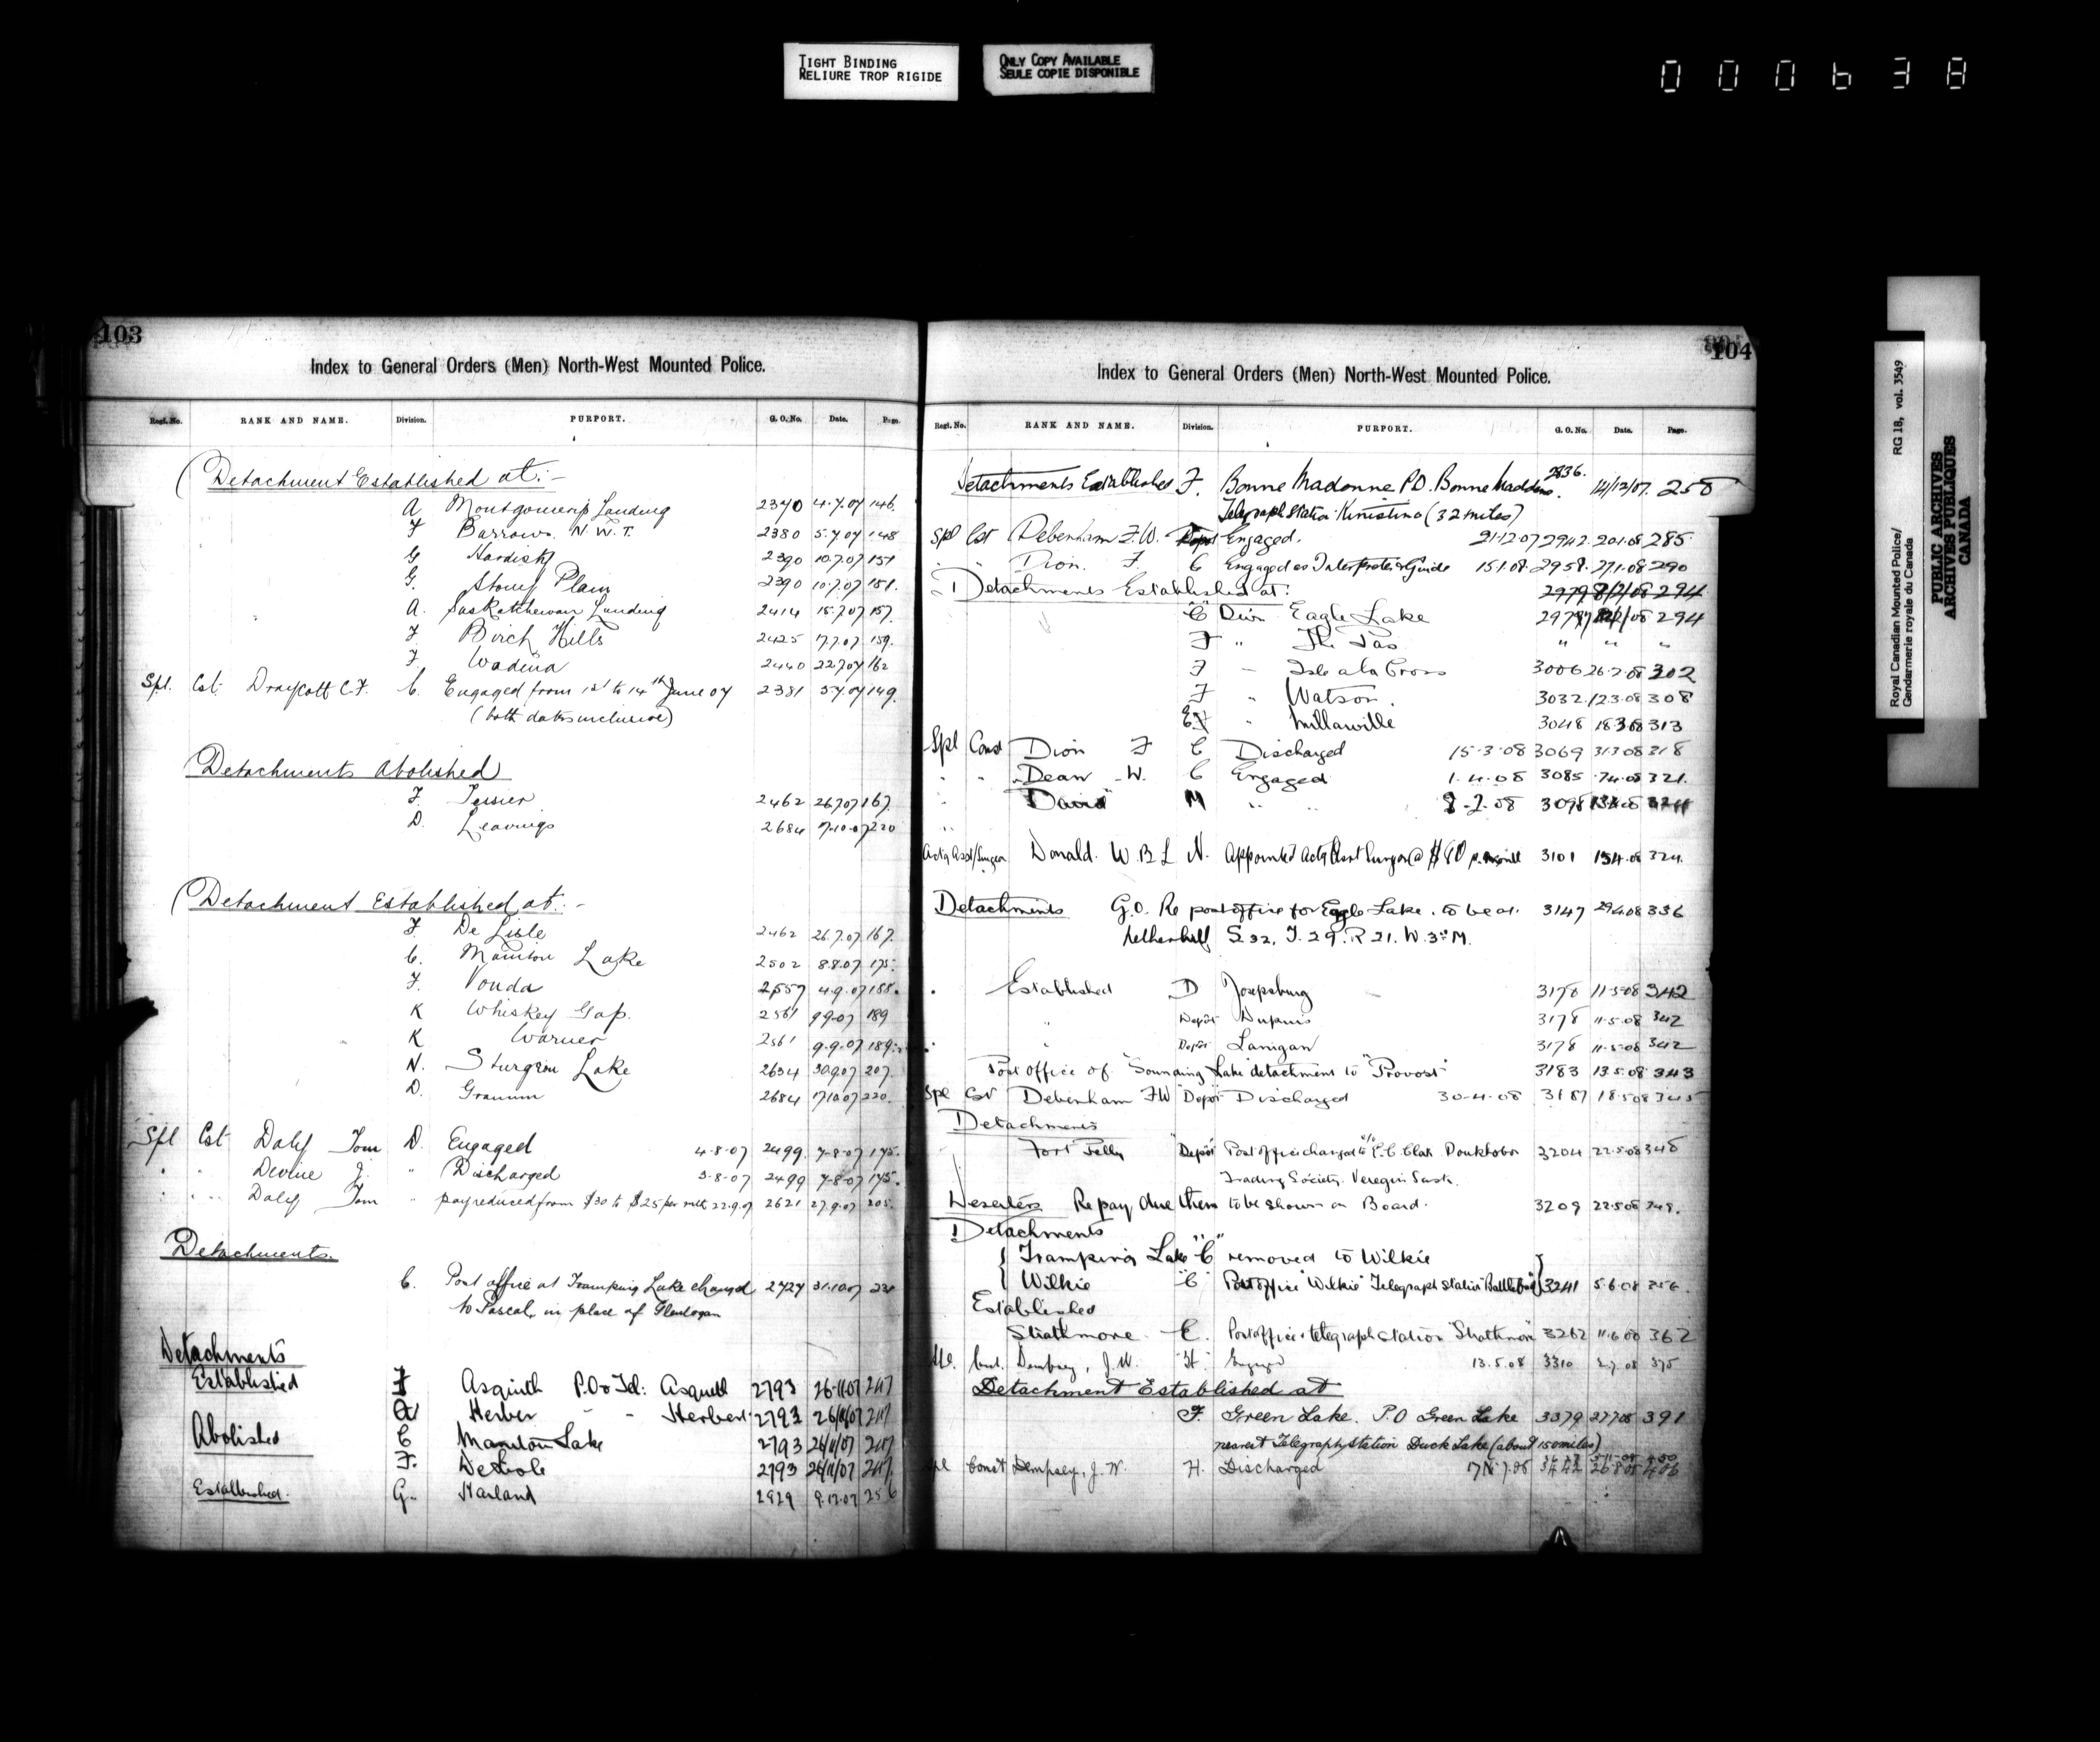 TIGHT BINDING
RELIURE TROP RIGIDE
ONLY COPY AVAILABLE
SEULE COPIE DISPONIBLE
000638
103
Index to General Orders (Men) North-West Mounted Police.
Regl. No. RANK AND NAME. Division. PURPORT. G. O. No. Date. Page.
Detachment Established at:-
A Montgomery's Landing 2340 4.7.07 146.
F Barrows. N.W.T. 2380 5.7.07 148
G Hardisty 2390 10.7.07 151
G. Stony Plain 2390 10.7.07 151.
A. Saskatchewan Landing 2414 15.7.07 157.
F Birch Hills 2425 17.7.07 159.
F. Wadena 2440 22.7.07 162
Spl. Cst. Draycott C.F. C. Engaged from 1st to 14th June 07 2381 5.7.07 149.
(both dates inclusive)
Detachments Abolished
F. Tessier 2462 26.7.07 167.
D. Leavings 2684 17-10-07 220
Detachment Established at:-
F. De Lisle 2462 26.7.07 167.
C. Manitou Lake 2502 8.8.07 175.
F. Vonda 2557 4.9.07 188.
K Whiskey Gap. 2561 9.9.07 189
K Warner 2561 9.9.07 189.
N. Sturgeon Lake 2634 30.9.07 207.
D. Granum 2684 17.10.07 220.
Spl Cst Daly Tom D. Engaged 4-8-07 2499. 7-8-07 175.
" " Devine J. " Discharged 3-8-07 2499 7-8-07 175.
" " Daly Tom " pay reduced from $30 to $25 per mth 22.9.07 2621 27.9.07 205.
Detachments.
C. Post office at Tramping Lake changed 2727 31.10.07
to Pascal, in place of Glenlogan
Detachments
Established F Asquith P.O & Tel: Asquith 2793 26-11-07 247
Herber - - Herbert 2793 26/11/07 247
Abolished C Manitou Lake 2793 26/11/07 247
F. DeLisle 2793 26/11/07 247.
Established. G. Harland 2829 9.12.07 256
104
Index to General Orders (Men) North-West Mounted Police.
Regl. No. RANK AND NAME. Division. PURPORT. G. O. No. Date. Page.
Detachments Established F. Bonne Madonne P.O. Bonne Madonne. 2836. 12/12/07. 258
Telegraph Station Kinistino (32 miles)
Spl Cst Debenham F.W. Depot Engaged. 21.12.07 2942. 20.1.08 285
" Dion. F. C Engaged as Interpreter & Guide 15.1.08. 2958. 27.1.08 290
Detachments Established at: 2979 294
"C" Divn Eagle Lake 2979 294
F " The Pas " " "
F - Isle a la Cross 3006 26.2.08 302
F " Watson. 3032. 12.3.08 308
E " Millarville 3048 18.3.08 313
Spl Const Dion F C Discharged 15-3-08 3069 31.3.08 318
" " Dean W. C Engaged 1.4.08 3085 7.4.08 321.
" "David" M " " 3098
Actg Asst/Surgeon Donald. W.B.L N. Appointed Actg Asst Surgeon @ 3101 15.4.08 324.
Detachments G.O. Re post office for Eagle Lake. to be at. 3147 29.4.08 336
Netherhill S.32, T.29. R 21. W.3rd M.
Established D Josepsburg 3178 11.5.08 342
" Depôt Dupuis 3178 11.5.08 342
" Depôt Lanigan 3178 11.5.08 342
Post office of "Sounding Lake" detachment to "Provost" 3183 13.5.08 343
Spl Cst Debenham FW "Depot" Discharged 30-4-08 3187 18.5.08 345
Detachments
Fort Pelly "Depot" Post office changed to c/o P.C. Clark Doukhobor 3204 22.5.08 348
Trading Society. Veregin Sask.
Deserters Re pay due them to be shown on Board. 3209 22.5.08 348.
Detachments
Tramping Lake "C" removed to Wilkie
Wilkie "C" Post office "Wilkie" Telegraph Station "Battleford" 3241 5.6.08 356.
Established
Strathmore E. Post office & telegraph station "Strathmore" 3262 11.6.08 362
Spl. Const. Dempsey, J.W. "H." Engaged 13.5.08 3310 2.7.08 375
Detachment Established at
F. Green Lake. P.O Green Lake 3379 27.7.08 391
nearest Telegraph Station Duck Lake (about 150 miles)
Spl Const Dempsey, J.W. H. Discharged 3442 26.8.08 406
Royal Canadian Mounted Police/ RG 18, vol. 3549
Gendarmerie royale du Canada
PUBLIC ARCHIVES
ARCHIVES PUBLIQUES
CANADA